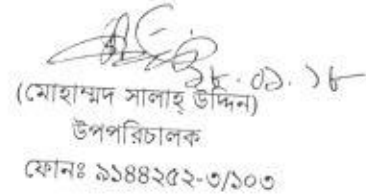 ১৮.০১.১৮
(মোহাম্মদ সালাহ্ উদ্দিন)
উপপরিচালক
ফোনঃ ৯১৪৪২৫২-৩/১০৩